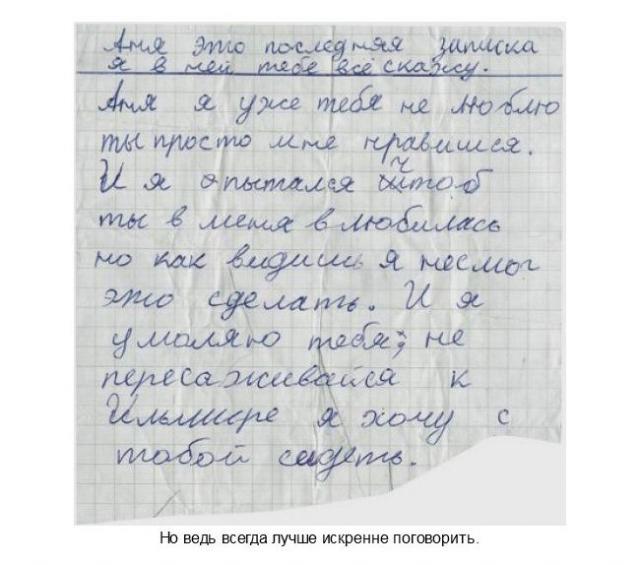 Аня это последняя записка
я в ней тебе всё скажу.
Аня я уже тебя не люблю
ты просто мне нравишся.
И я опытался чтоб
ты в меня влюбилась
но как видишь я несмог
это сделать. И я
умоляю тебя; не
пересаживайся к
Ильмире я хочу с
тобой сидеть.
Но ведь всегда лучше искренне поговорить.